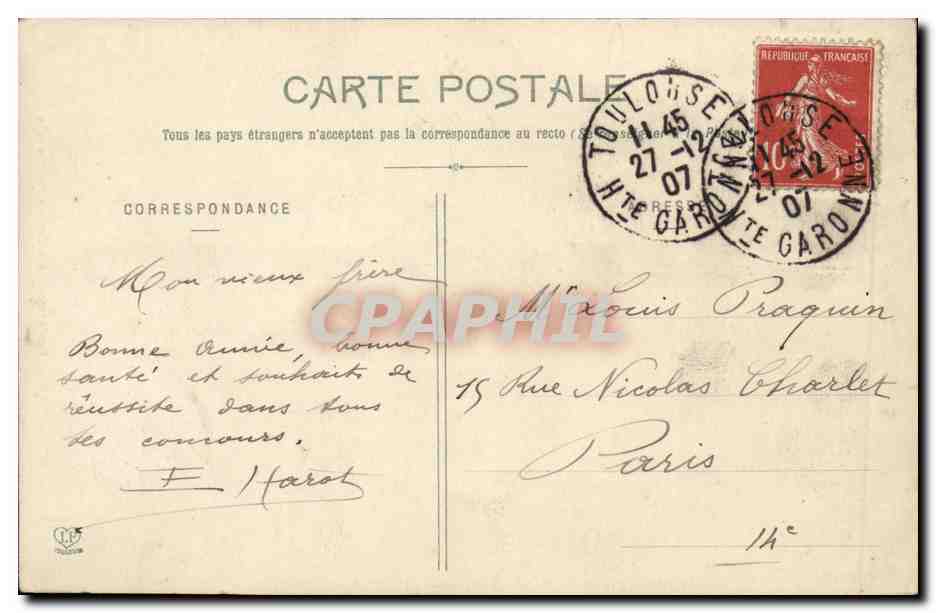 CARTE POSTALE
Tous les pays étrangers n'acceptent pas la correspondance au recto (Se renseigner à la Poste)
REPUBLIQUE FRANÇAISE
10
POSTES
TOULOUSE
11 45
27 -12
07
Hte GARONNE
TOULOUSE
11 45
27 -12
07
Hte GARONNE
CORRESPONDANCE
ADRESSE
Mon vieux frère
Bonne année, bonne
santé et souhaits de
réussite dans tous
tes concours.
E Harot
Mr Louis Praquin
15 Rue Nicolas Charlet
Paris
14e
CPAPHIL